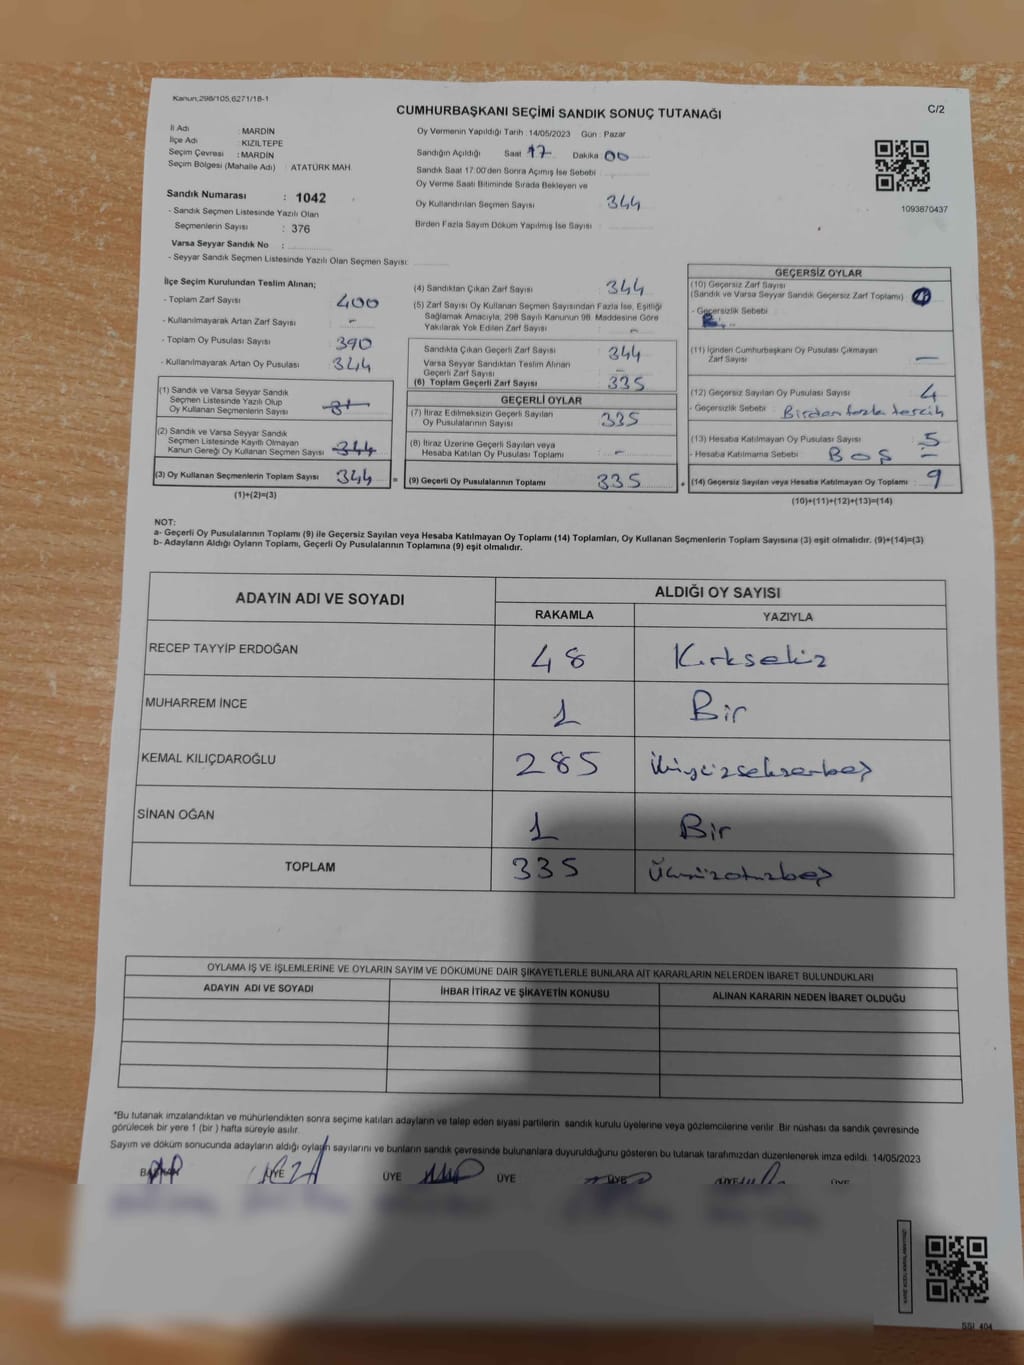 Kanun;298/105,6271/18-1
C/2
CUMHURBAŞKANI SEÇİMİ SANDIK SONUÇ TUTANAĞI
İl Adı : MARDİN
İlçe Adı : KIZILTEPE
Seçim Çevresi : MARDİN
Seçim Bölgesi (Mahalle Adı) : ATATÜRK MAH.
Sandık Numarası : 1042
- Sandık Seçmen Listesinde Yazılı Olan
Seçmenlerin Sayısı : 376
Varsa Seyyar Sandık No :
- Seyyar Sandık Seçmen Listesinde Yazılı Olan Seçmen Sayısı:
Oy Vermenin Yapıldığı Tarih : 14/05/2023 Gün : Pazar
Sandığın Açıldığı Saat 17 Dakika 00
Sandık Saat 17:00'den Sonra Açımış İse Sebebi
Oy Verme Saati Bitiminde Sırada Bekleyen ve
Oy Kullandırılan Seçmen Sayısı 344
Birden Fazla Sayım Döküm Yapılmış İse Sayısı :
1093870437
İlçe Seçim Kurulundan Teslim Alınan;
- Toplam Zarf Sayısı 400
- Kullanılmayarak Artan Zarf Sayısı -
- Toplam Oy Pusulası Sayısı 390
- Kullanılmayarak Artan Oy Pusulası 344
(1) Sandık ve Varsa Seyyar Sandık
Seçmen Listesinde Yazılı Olup
Oy Kullanan Seçmenlerin Sayısı
(2) Sandık ve Varsa Seyyar Sandık
Seçmen Listesinde Kayıtlı Olmayan
Kanun Gereği Oy Kullanan Seçmen Sayısı 344
(3) Oy Kullanan Seçmenlerin Toplam Sayısı 344
(1)+(2)=(3)
(4) Sandıktan Çıkan Zarf Sayısı 344
(5) Zarf Sayısı Oy Kullanan Seçmen Sayısından Fazla İse, Eşitliği
Sağlamak Amacıyla, 298 Sayılı Kanunun 98. Maddesine Göre
Yakılarak Yok Edilen Zarf Sayısı -
Sandıkta Çıkan Geçerli Zarf Sayısı 344
Varsa Seyyar Sandıktan Teslim Alınan
Geçerli Zarf Sayısı -
(6) Toplam Geçerli Zarf Sayısı 335
GEÇERLİ OYLAR
(7) İtiraz Edilmeksizin Geçerli Sayılan
Oy Pusulalarının Sayısı 335
(8) İtiraz Üzerine Geçerli Sayılan veya
Hesaba Katılan Oy Pusulası Toplamı -
= (9) Geçerli Oy Pusulalarının Toplamı 335 +
GEÇERSİZ OYLAR
(10) Geçersiz Zarf Sayısı
(Sandık ve Varsa Seyyar Sandık Geçersiz Zarf Toplamı)
- Geçersizlik Sebebi
(11) İçinden Cumhurbaşkanı Oy Pusulası Çıkmayan
Zarf Sayısı -
(12) Geçersiz Sayılan Oy Pusulası Sayısı 4
- Geçersizlik Sebebi Birden fazla tercih
(13) Hesaba Katılmayan Oy Pusulası Sayısı 5
- Hesaba Katılmama Sebebi BOŞ -
(14) Geçersiz Sayılan veya Hesaba Katılmayan Oy Toplamı 9
(10)+(11)+(12)+(13)=(14)
NOT:
a- Geçerli Oy Pusulalarının Toplamı (9) ile Geçersiz Sayılan veya Hesaba Katılmayan Oy Toplamı (14) Toplamları, Oy Kullanan Seçmenlerin Toplam Sayısına (3) eşit olmalıdır. (9)+(14)=(3)
b- Adayların Aldığı Oyların Toplamı, Geçerli Oy Pusulalarının Toplamına (9) eşit olmalıdır.
ADAYIN ADI VE SOYADI
ALDIĞI OY SAYISI
RAKAMLA YAZIYLA
RECEP TAYYİP ERDOĞAN 48 Kırksekiz
MUHARREM İNCE 1 Bir
KEMAL KILIÇDAROĞLU 285 ikiyüzseksenbeş
SİNAN OĞAN 1 Bir
TOPLAM 335 Üçyüzotuzbeş
OYLAMA İŞ VE İŞLEMLERİNE VE OYLARIN SAYIM VE DÖKÜMÜNE DAİR ŞİKAYETLERLE BUNLARA AİT KARARLARIN NELERDEN İBARET BULUNDUKLARI
ADAYIN ADI VE SOYADI İHBAR İTİRAZ VE ŞİKAYETİN KONUSU ALINAN KARARIN NEDEN İBARET OLDUĞU
*Bu tutanak imzalandıktan ve mühürlendikten sonra seçime katılan adayların ve talep eden siyasi partilerin sandık kurulu üyelerine veya gözlemcilerine verilir. Bir nüshası da sandık çevresinde
görülecek bir yere 1 (bir ) hafta süreyle asılır.
Sayım ve döküm sonucunda adayların aldığı oyların sayılarını ve bunların sandık çevresinde bulunanlara duyurulduğunu gösteren bu tutanak tarafımızdan düzenlenerek imza edildi. 14/05/2023
BAŞKAN ÜYE ÜYE ÜYE ÜYE ÜYE ÜYE
SSI_404